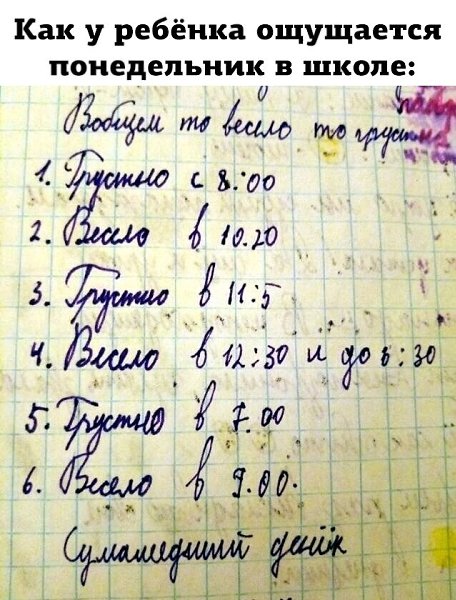 Как у ребёнка ощущается
понедельник в школе:
Вобщем то весело то грустно
1. Грустно с 8:00
2. Весело в 10.20
3. Грустно в 11:5
4. Весело в 12:30 и до 6:30
5. Грустно в 7.00
6. Весело в 9.00.
Сумашедший денёк